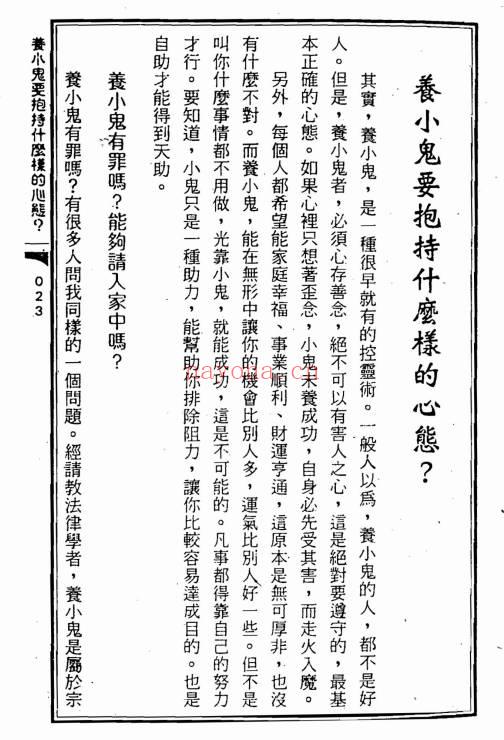 養小鬼要抱持什麼樣的心態？
其實，養小鬼，是一種很早就有的控靈術。一般人以爲，養小鬼的人，都不是好
人。但是，養小鬼者，必須心存善念，絕不可以有害人之心，這是絕對要遵守的，最基
本正確的心態。如果心裡只想著歪念，小鬼未養成功，自身必先受其害，而走火入魔。
另外，每個人都希望能家庭幸福、事業順利、財運亨通，這原本是無可厚非，也沒
有什麼不對。而養小鬼，能在無形中讓你的機會比別人多，運氣比別人好一些。但不是
叫你什麼事情都不用做，光靠小鬼，就能成功，這是不可能的。凡事都得靠自己的努力
才行。要知道，小鬼只是一種助力，能幫助你排除阻力，讓你比較容易達成目的。也是
自助才能得到天助。
養小鬼有罪嗎？能夠請入家中嗎？
養小鬼有罪嗎？有很多人問我同樣的一個問題。經請教法律學者，養小鬼是屬於宗
養小鬼要抱持什麼樣的心態？
023
nayona.cn